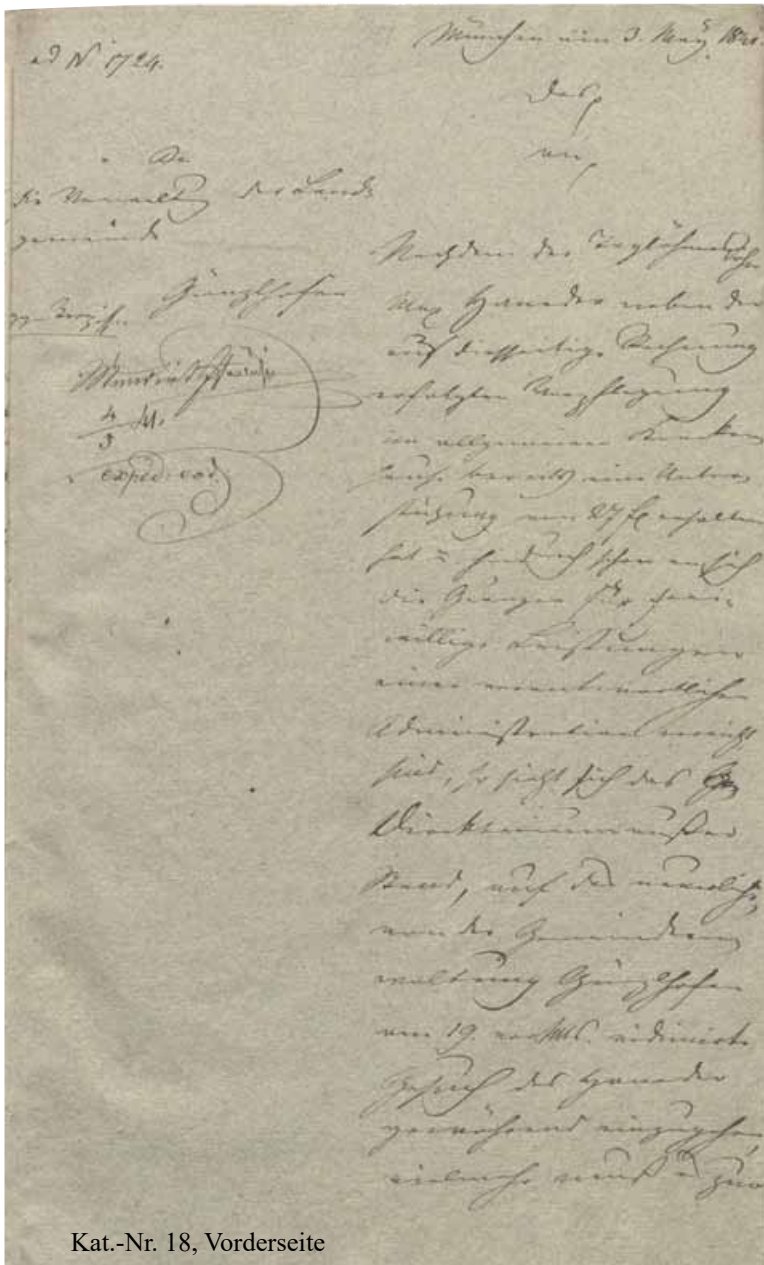 ad N 1724.
München am 3. May 184
Das
an
An
die Verwaltung der Land-
gemeinde
Günzlhofen
4/5 41.
exped. eod.
Nachdem der Taglöhnerssohn
Max Haneder neben der
auf diesseitige Rechnung
erfolgten Verpflegung
im allgemeinen Kranken-
hause bereits eine Unter-
stützung von 27 fl erhalten
hat hiedurch schon an sich
die Grenzen für frei-
willige Leistungen
einer verantwortlichen
Administration erreicht
sind, so sieht sich das
Direktorium außer
Stand, auf das neuerliche
von der Gemeindever-
waltung Günzlhofen
am 19. v. Mts. vidimirte
Gesuch des Haneder
gewährend einzugehen,
vielmehr muß zur
Kat.-Nr. 18, Vorderseite